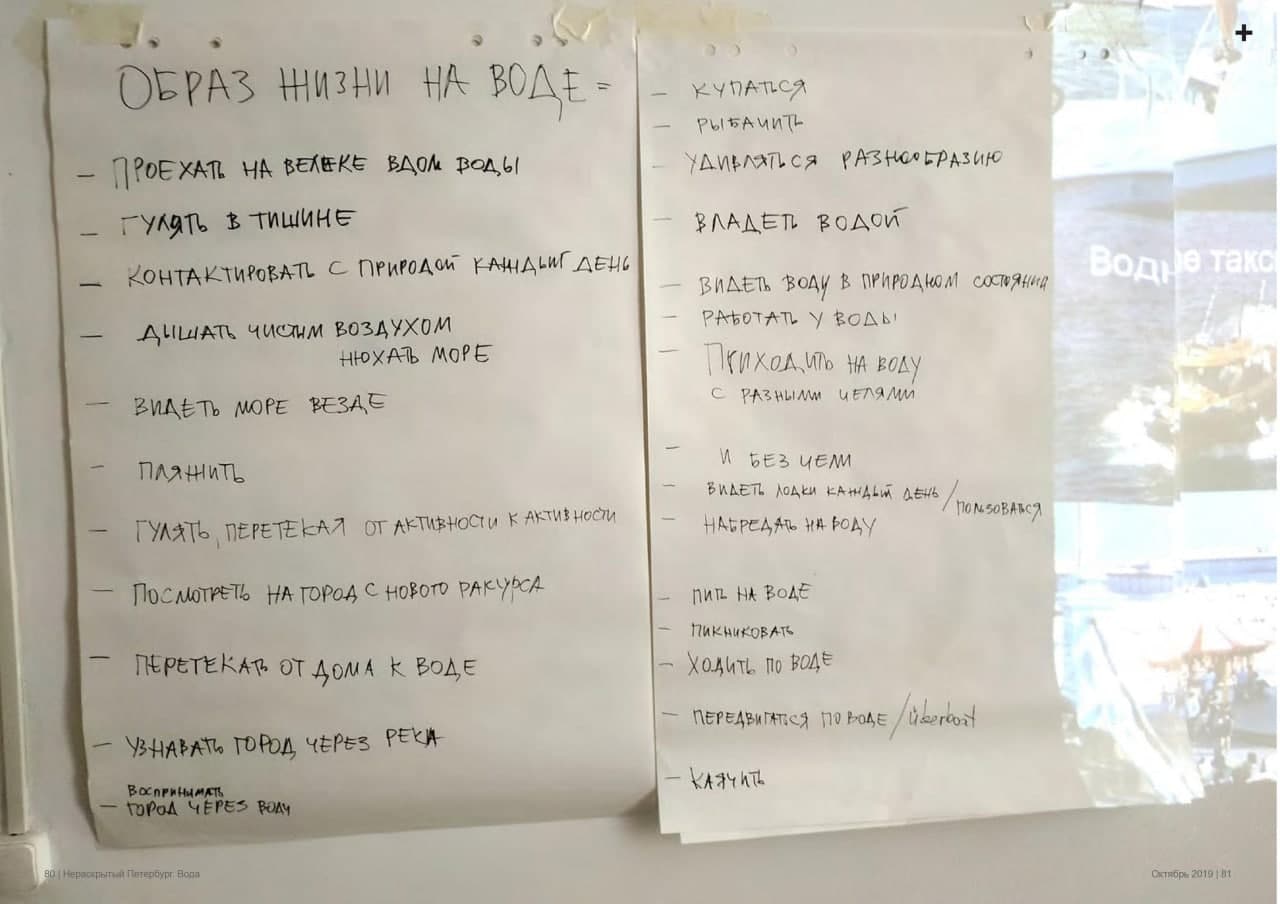 ОБРАЗ ЖИЗНИ НА ВОДЕ =
– ПРОЕХАТЬ НА ВЕЛЕКЕ ВДОЛ ВОДЫ
– ГУЛЯТЬ В ТИШИНЕ
– КОНТАКТИРОВАТЬ С ПРИРОДОЙ КАЖДЫЙ ДЕНЬ
– ДЫШАТЬ ЧИСТЫМ ВОЗДУХОМ
НЮХАТЬ МОРЕ
– ВИДЕТЬ МОРЕ ВЕЗДЕ
– ПЛЯЖИТЬ
– ГУЛЯТЬ, ПЕРЕТЕКАЯ ОТ АКТИВНОСТИ К АКТИВНОСТИ
– ПОСМОТРЕТЬ НА ГОРОД С НОВОГО РАКУРСА
– ПЕРЕТЕКАТЬ ОТ ДОМА К ВОДЕ
– УЗНАВАТЬ ГОРОД ЧЕРЕЗ РЕКА
ВОСПРИНИМАТЬ
– ГОРОД ЧЕРЕЗ ВОДУ
– КУПАТЬСЯ
– РЫБАЧИТЬ
– УДИВЛЯТЬСЯ РАЗНООБРАЗИЮ
– ВЛАДЕТЬ ВОДОЙ
– ВИДЕТЬ ВОДУ В ПРИРОДНОМ СОСТОЯНИИ
– РАБОТАТЬ У ВОДЫ
– ПРИХОДИТЬ НА ВОДУ
С РАЗНЫМИ ЦЕЛЯМИ
– И БЕЗ ЦЕЛИ
– ВИДЕТЬ ЛОДКИ КАЖДЫЙ ДЕНЬ / ПОЛЬЗОВАТЬСЯ
– НАБРЕДАТЬ НА ВОДУ
– ПИТЬ НА ВОДЕ
– ПИКНИКОВАТЬ
– ХОДИТЬ ПО ВОДЕ
– ПЕРЕДВИГАТЬСЯ ПО ВОДЕ / überboat
– КАЯЧИТЬ
+
80 | Нераскрытый Петербург. Вода
Октябрь 2019 | 81